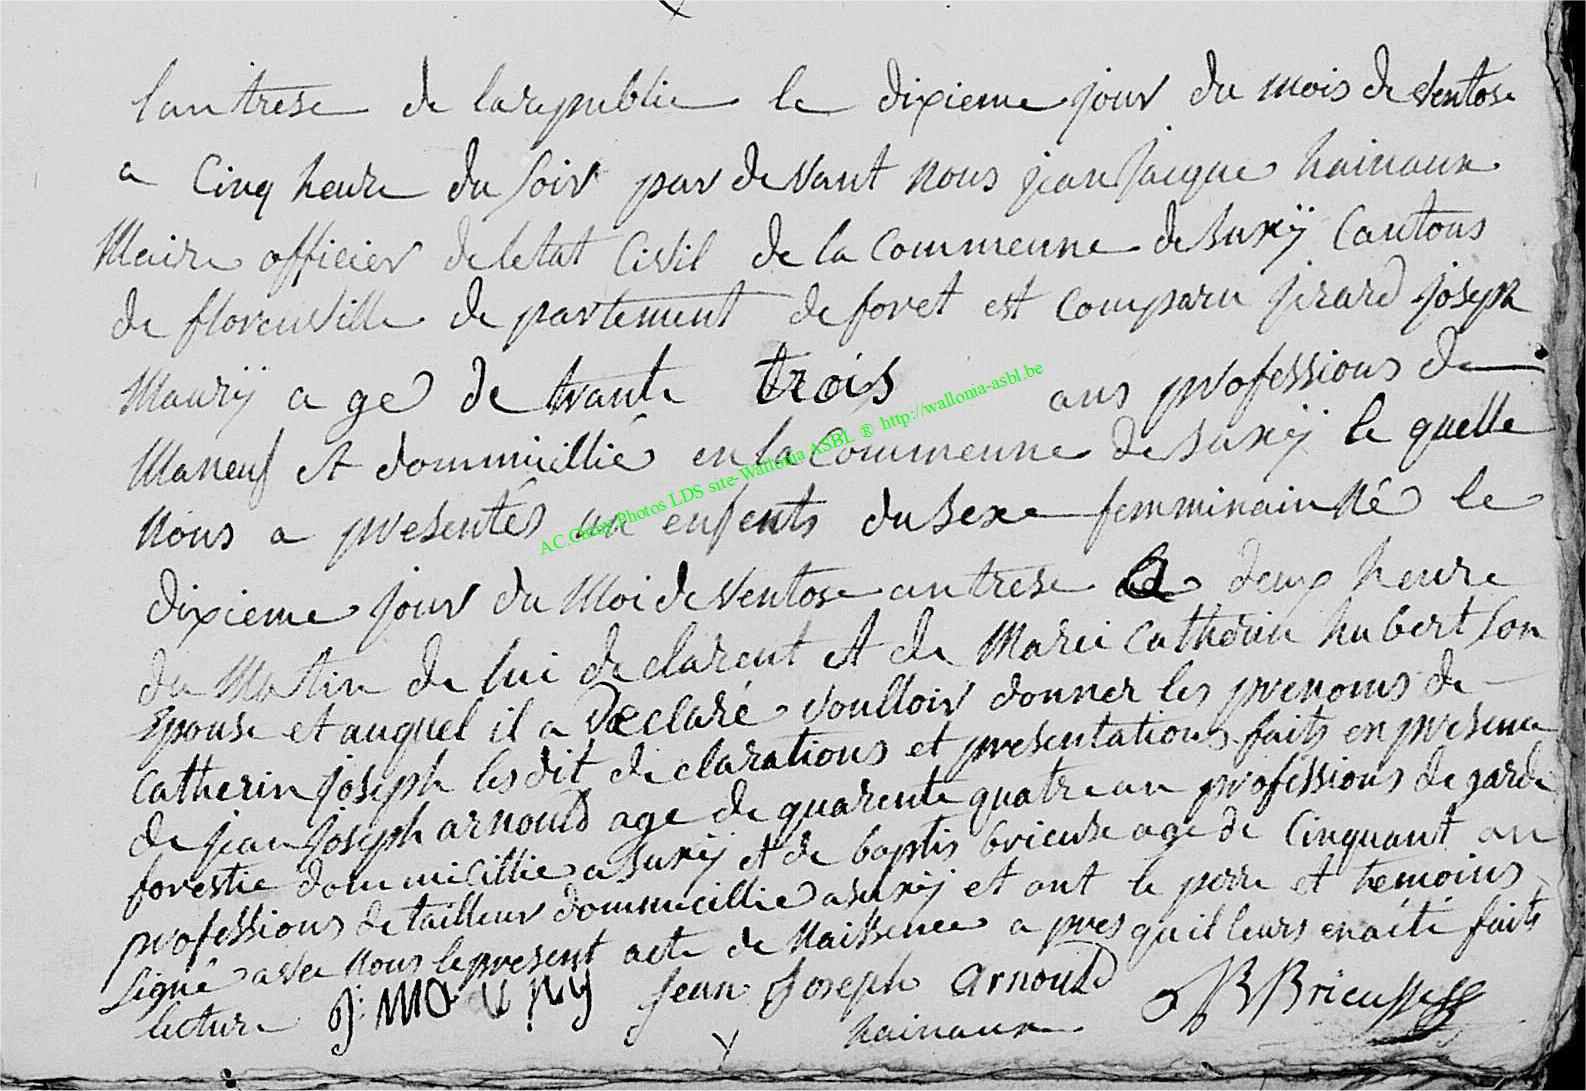 lan trese de larepublie le dixieme jour du mois de Ventose
a Cinq heure du Soir par de Vant nous jean Jacque hainaux
Maire officier de letat Civil de la Commenne de Suxÿ Cantons
de florenville de partement de foret est Comparu jirard joseph
Maurÿ a ge de trante trois ans professions de
Maneuf et dommicillié en la Commenne de Suxÿ le quelle
nous a presentés un enfents du Sexe femminain Né le
dixieme jour du Moi de Ventose an trese a deux heure
du Matin de lui de clarent et de Marei Catherin hubert Son
Epouse et auquel il a Declaré voulloir donner les prenoms de
Catherin joseph les dit de clarations et presentations faits en presence
de jean joseph arnould age de quarente quatre an professions de garde
forestie dommicillie a Suxÿ et de baptis bricuse age de Cinquant an
professions de tailleur dommicillie a Suxÿ et ont le perre et temoins
Signé avec nous le present acte de Naissence a pres qu il leurs en a été faits
lecture j: maury jean joseph arnould B Bricusse
hainaux
AC.Garay Photos LDS site-Wallonia ASBL ® http://wallonia-asbl.be